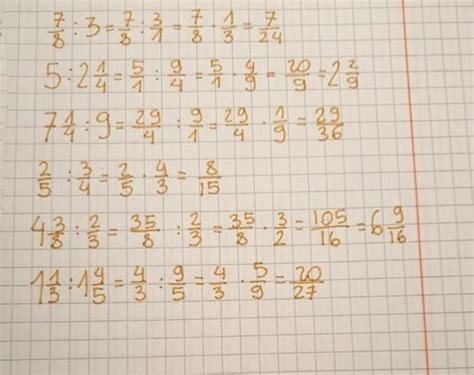 7/8 : 3 = 7/8 : 3/1 = 7/8 · 1/3 = 7/24
5 : 2 1/4 = 5/1 : 9/4 = 5/1 · 4/9 = 20/9 = 2 2/9
7 1/4 : 9 = 29/4 : 9/1 = 29/4 · 1/9 = 29/36
2/5 : 3/4 = 2/5 · 4/3 = 8/15
4 3/8 : 2/3 = 35/8 : 2/3 = 35/8 · 3/2 = 105/16 = 6 9/16
1 1/3 : 1 4/5 = 4/3 : 9/5 = 4/3 · 5/9 = 20/27